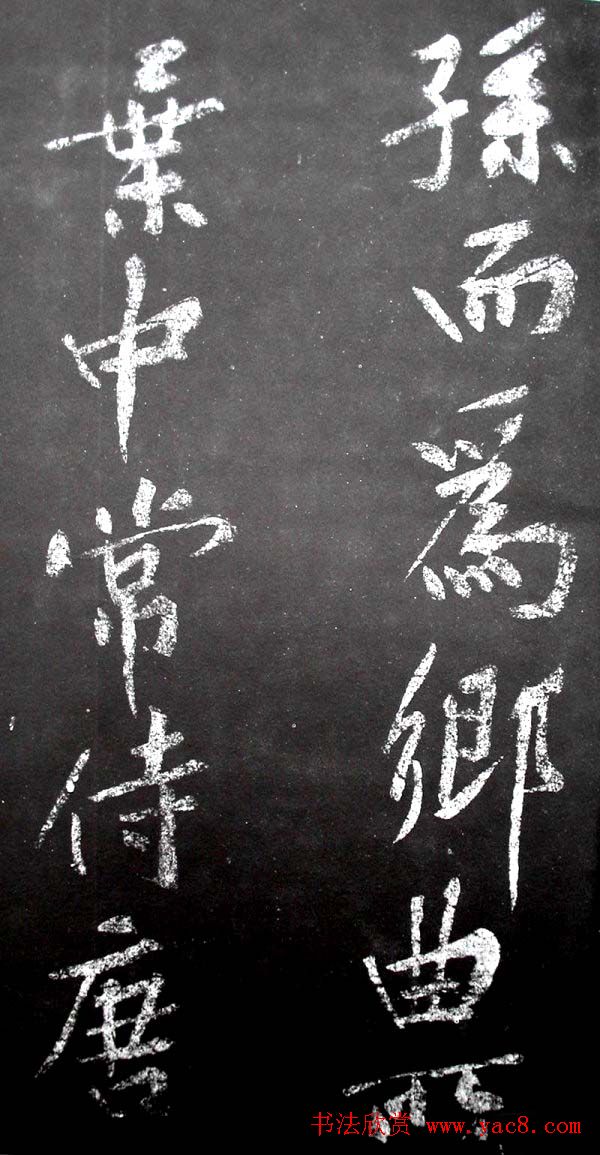 孫而爲鄉曲所
棄中常侍唐
书法欣赏 www.yac8.com